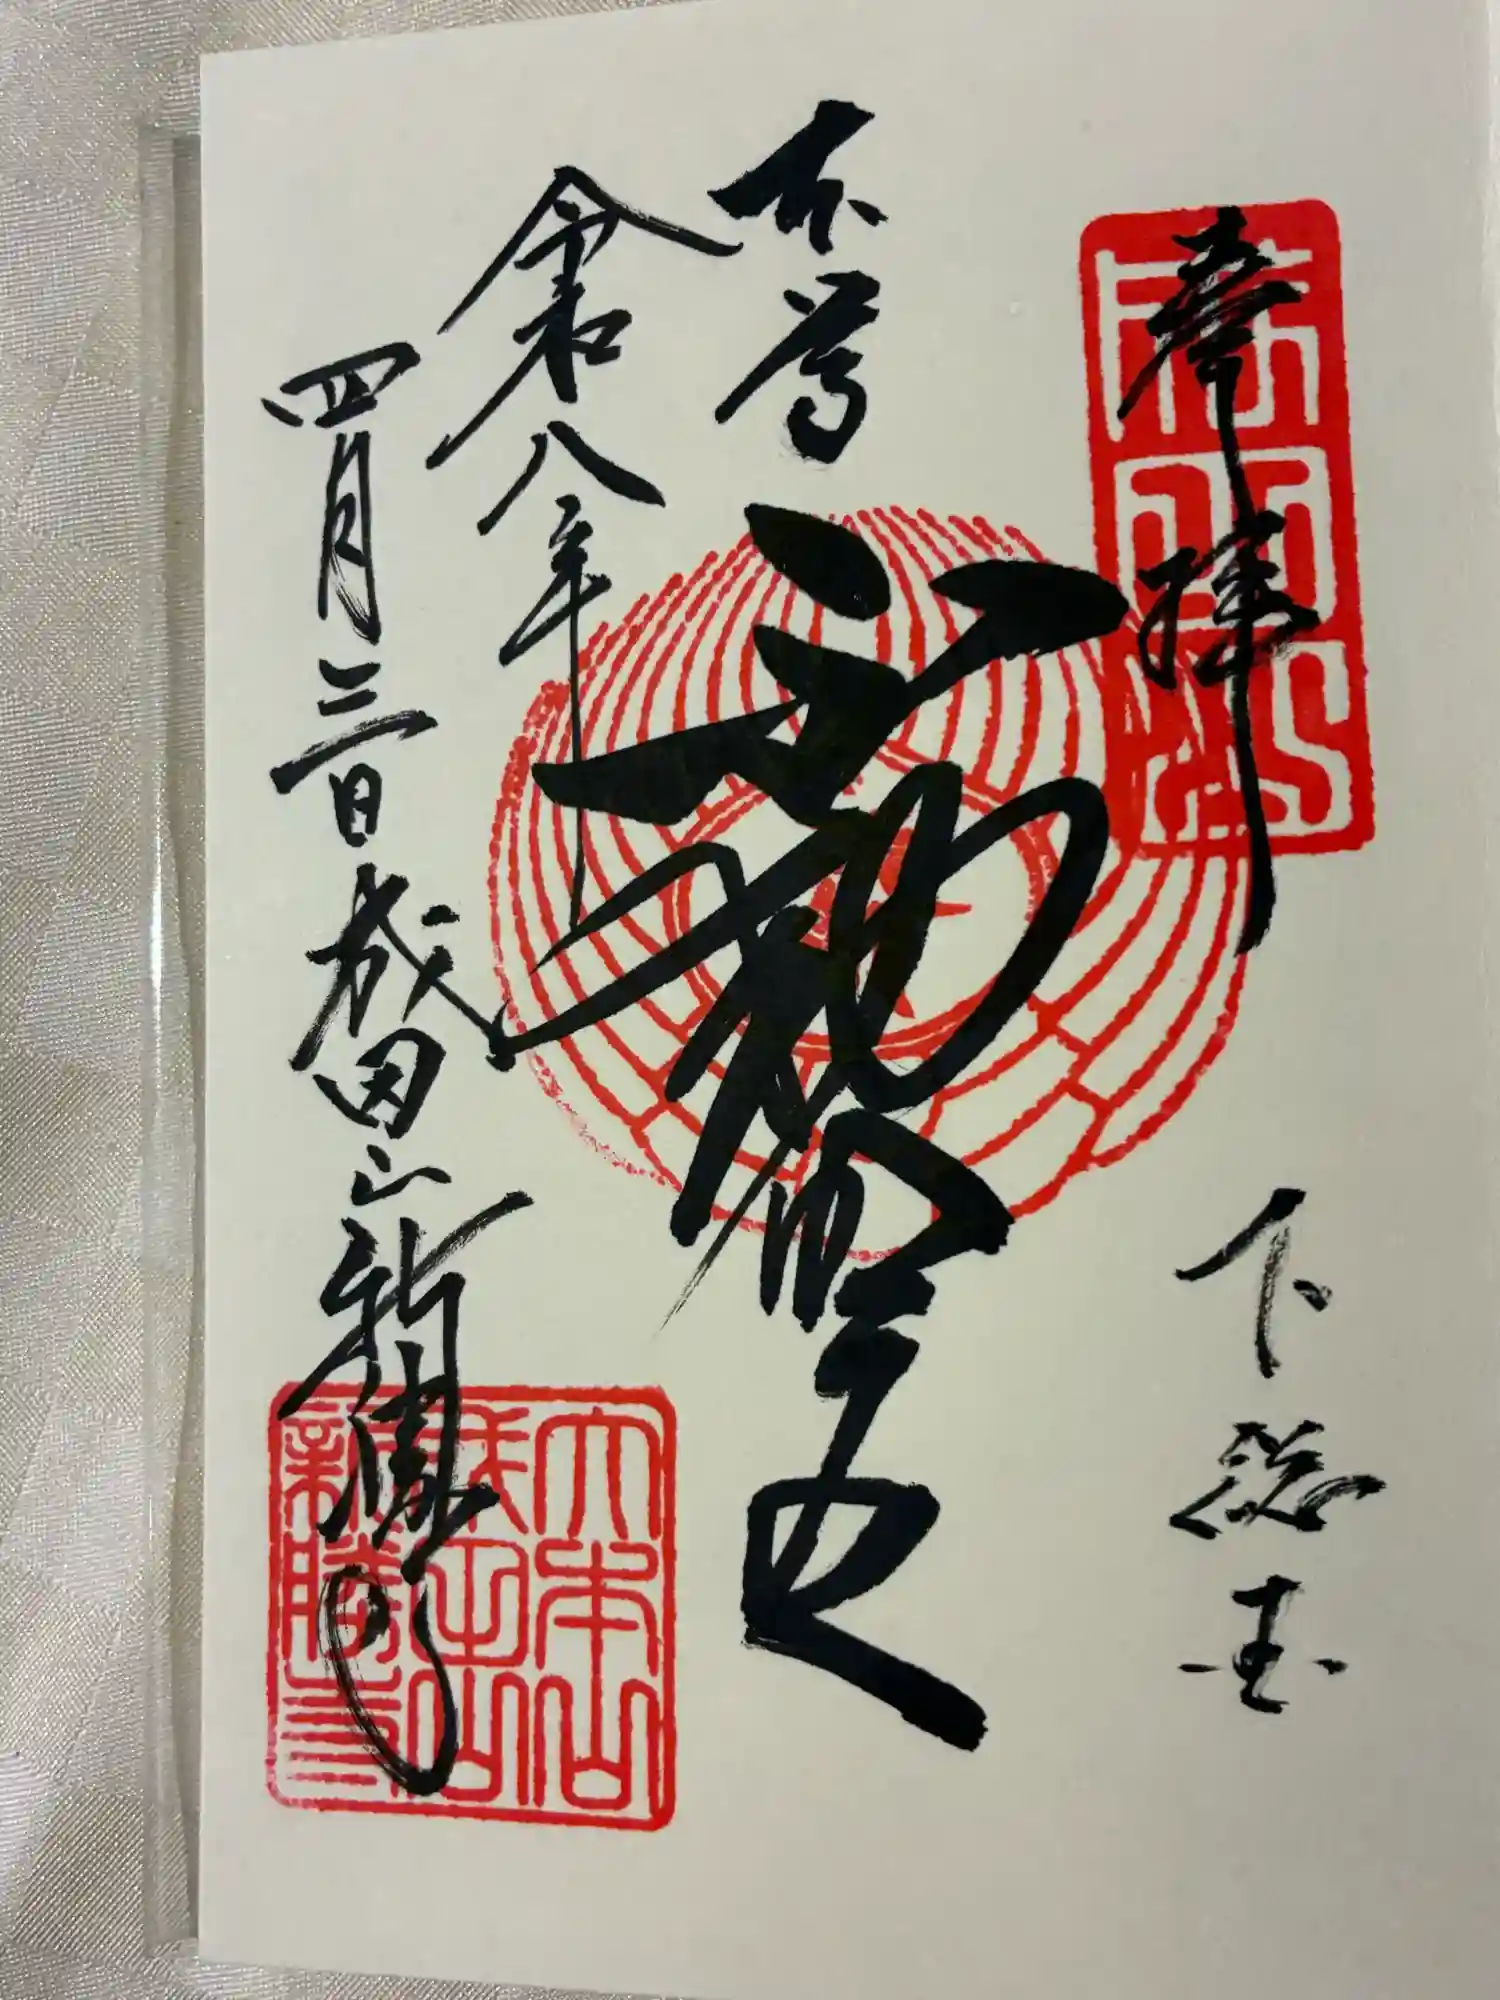 奉拝
成田山
下総国
本尊
令和八年
四月三日 成田山新勝寺
大本山
成田山
新勝寺